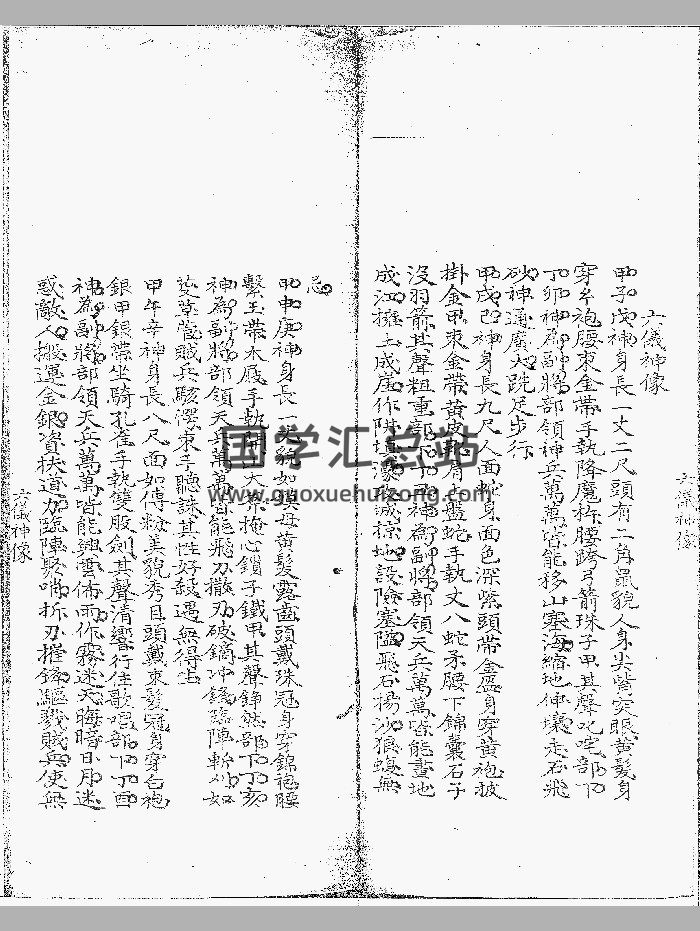 六儀神像
甲子戊神身長一丈二尺頭有二角鼠貌人身尖嘴突眼黄髮身
穿皂袍腰束金带手執降魔杵腰跨弓箭珠子甲其聲叱咤部下
丁卯神為副將部領神兵萬萬皆能移山塞海縮地伸壤走石飛
砂神通廣大跣足步行
甲戌己神身長九尺人面蛇身面色深紫頭帶金盔身穿黄袍披
掛金甲束金帶黄皮靴肩盤蛇手執丈八蛇矛腰下錦囊石子
沒羽箭其聲粗重部下丁丑神為副將部領天兵萬萬皆能畫地
成江擁土成崖作阱填濠改城掠地設險塞隘飛石揚沙狼無
忌
甲申庚神身長一丈貌如猴母黄髮露齒頭戴珠冠身穿錦袍腰
繫玉帶木屐手執開山大斧掩心鎖子鐵甲其聲錚然部下丁亥
神為副將部領天兵萬萬皆能飛刀撒刃破鏑冲鋒臨陣斬如
草賊兵駭愕束手聽誅其性好殺遇無得生
甲午辛神身長八尺面如傅粉美貌秀目頭戴束髮冠身穿白袍
銀甲銀帶坐騎孔雀手執雙股劍其聲清響行住歌唱部下丁酉
神為副將部領天兵萬萬皆能興雲佈雨作霧迷天晦暗日月迷
惑敵人搬運金銀資扶道力臨陣吶折刀摧鋒驅戮賊兵使無
六儀神像
六儀神像
国学汇总站
www.guoxuehuizong.com